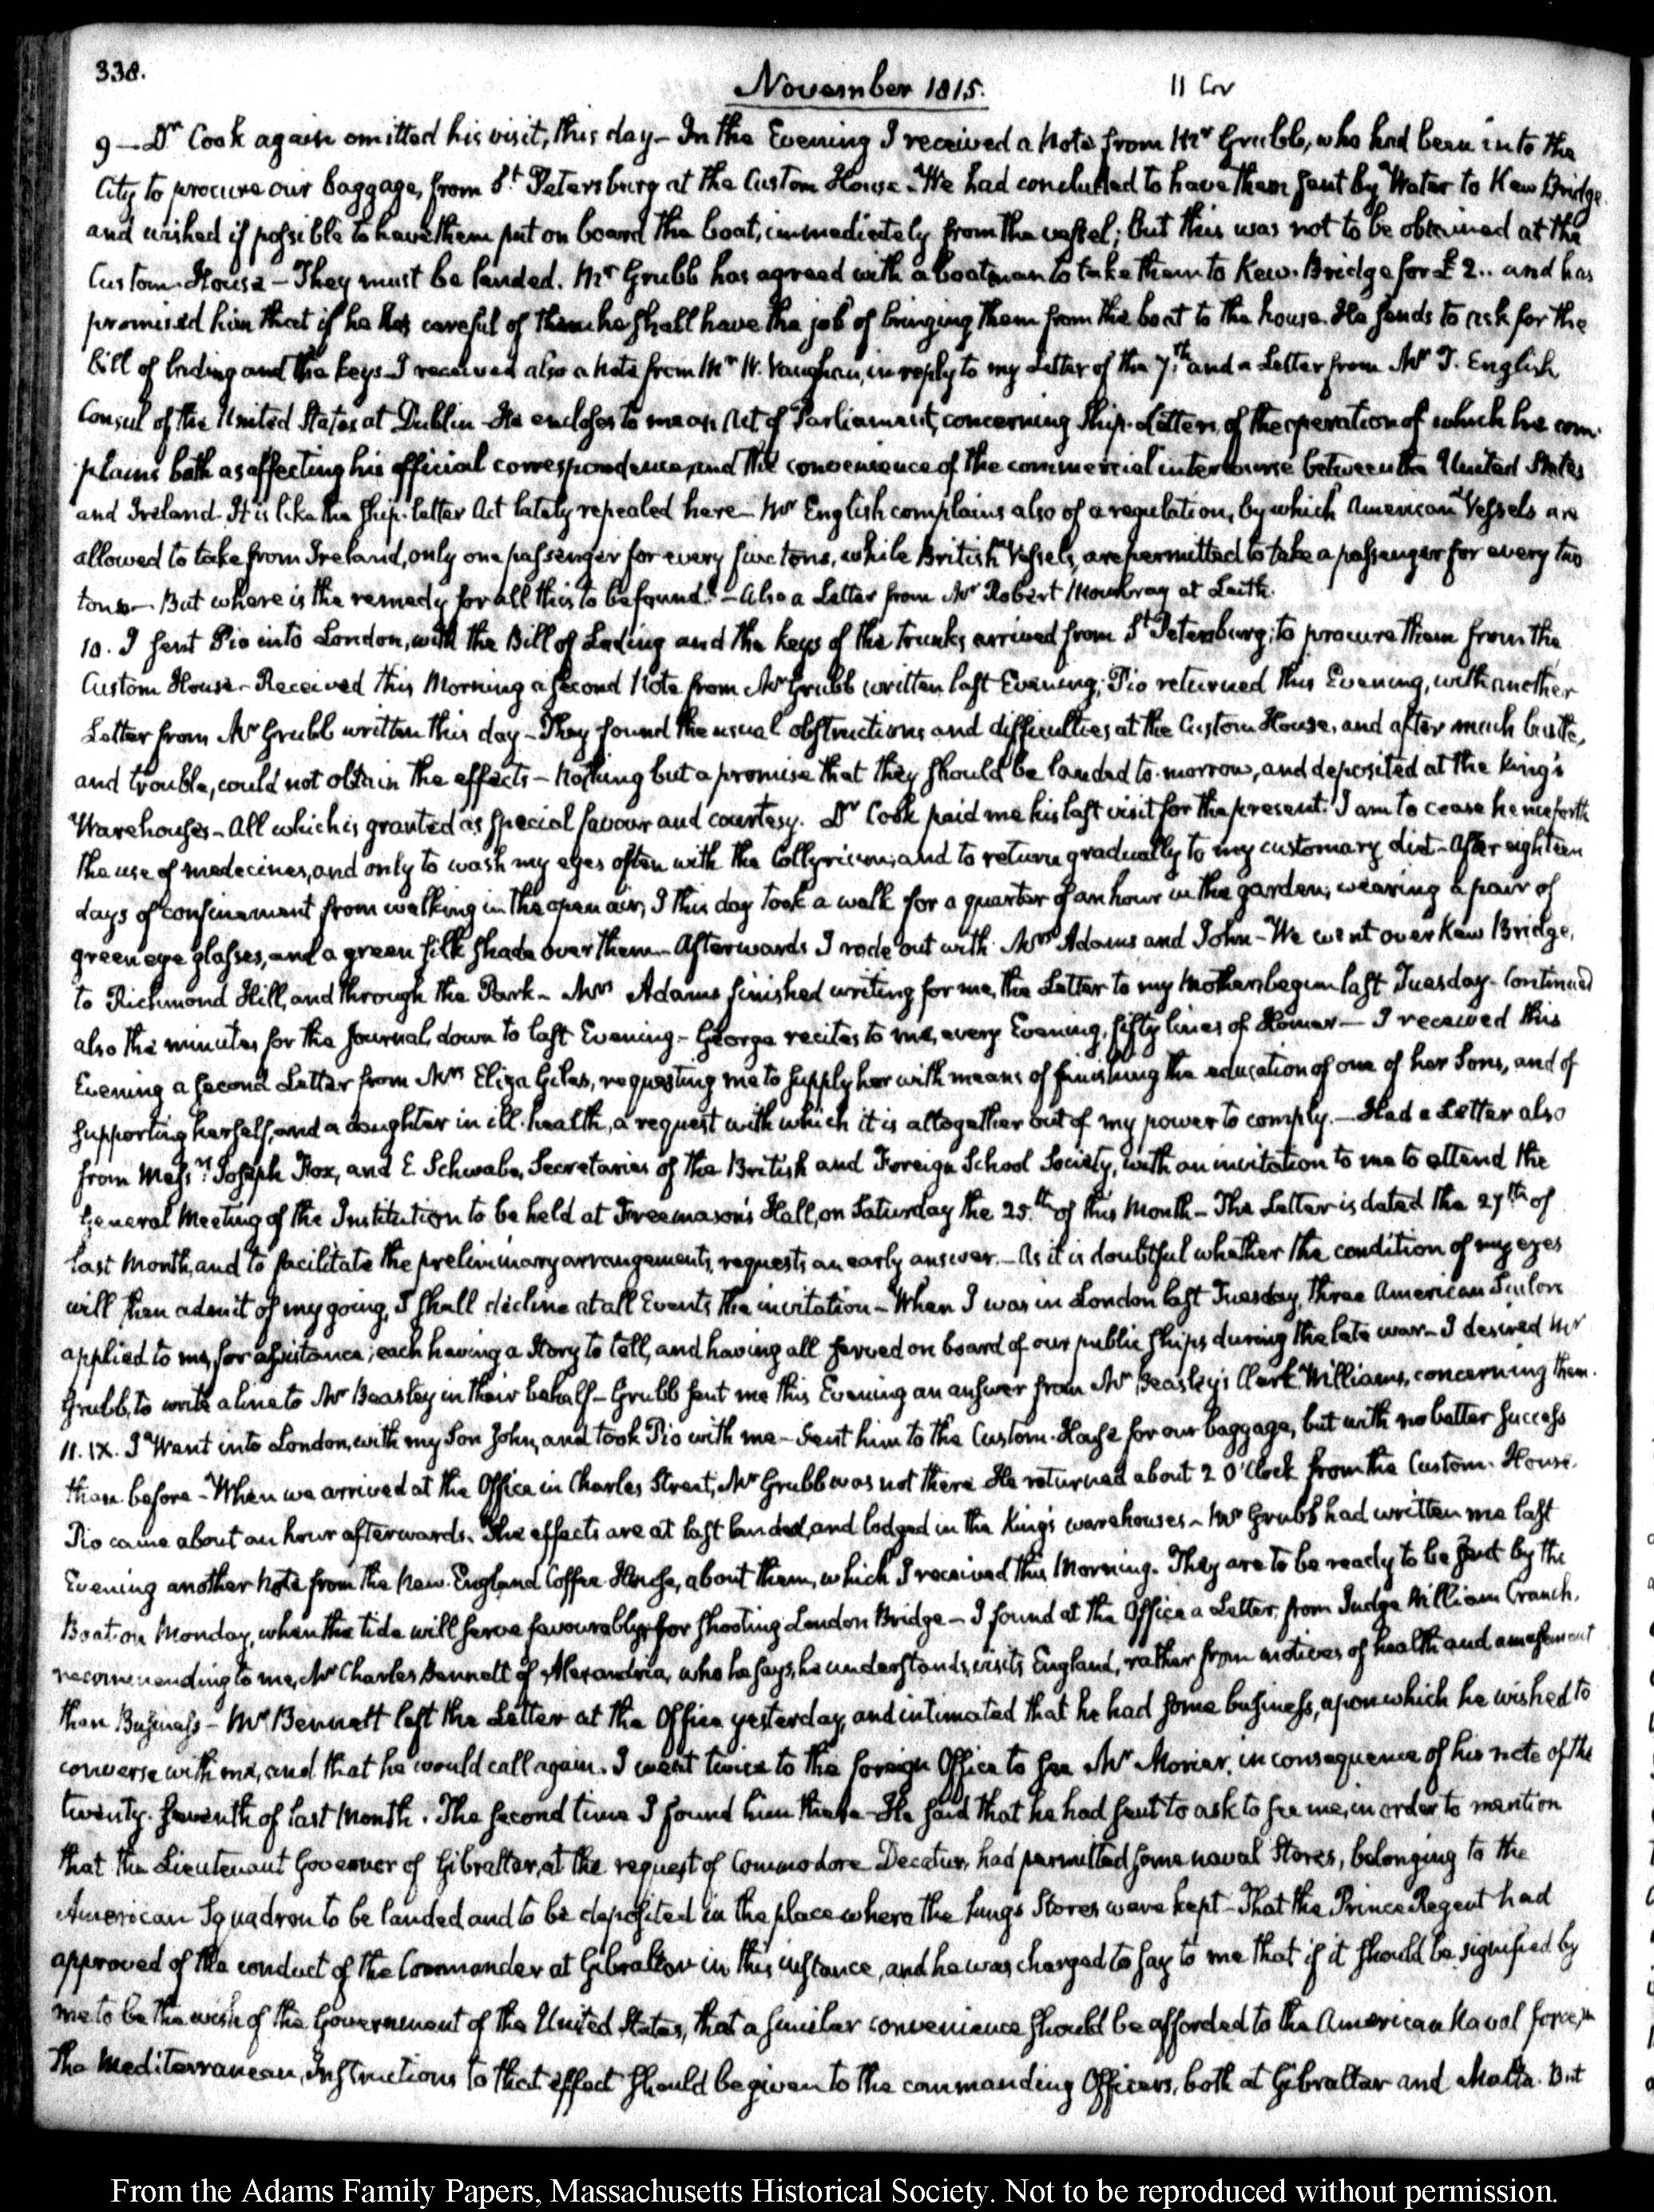 338.
November 1815.
9 — Dr Cook again omitted his visit, this day — In the Evening I received a Note from Mr Grubb, who had been into the
City to procure our baggage, from St Petersburg at the Custom House. We had concluded to have them sent by Water to Kew Bridge
and wished if possible to have them put on board the boat, immediately from the vessel; but this was not to be obtained at the
Custom-House — They must be landed. Mr Grubb has agreed with a boatman to take them to Kew-Bridge for £2.. and has
promised him that if he is careful of them he shall have the job of bringing them from the boat to the house. He sends to ask for the
bill of lading and the keys — I received also a Note from Mr W. Vaughan, in reply to my Letter of the 7th and a Letter from Mr T. English
Consul of the United States at Dublin — He encloses to me an Act of Parliament, concerning Ship-Letters, of the operation of which he com-
plains both as affecting his official correspondence, and the convenience of the commercial intercourse between the United States
and Ireland. It is like the Ship-letter Act lately repealed here — Mr English complains also of a regulation, by which American Vessels are
allowed to take from Ireland, only one passenger for every five tons, while British Vessels, are permitted to take a passenger for every two
tons — But where is the remedy for all this to be found? — Also a Letter from Mr Robert Mowbray at Leith.
10. I sent Pio into London, with the Bill of Lading and the keys of the trunks, arrived from St Petersburg; to procure them from the
Custom House — Received this Morning a second Note from Mr Grubb written last Evening; Pio returned this Evening, with another
Letter from Mr Grubb written this day — They found the usual obstructions and difficulties at the Custom House, and after much bustle,
and trouble, could not obtain the effects — Nothing but a promise that they should be landed to-morrow, and deposited at the King's
Warehouses — All which is granted as special favour and courtesy. Dr Cook paid me his last visit for the present. I am to cease henceforth
the use of medecines, and only to wash my eyes often with the Collyrium; and to return gradually to my customary diet — After eighteen
days of confinement from walking in the open air, I this day took a walk for a quarter of an hour in the garden, wearing a pair of
green eye glasses, and a green silk shade over them — Afterwards I rode out with Mrs Adams and John — We went over Kew Bridge,
to Richmond Hill, and through the Park — Mrs Adams finished writing for me, the Letter to my Mother, begun last Tuesday. Continued
also the minutes for the Journal, down to last Evening — George recites to me, every Evening, fifty lines of Homer — I received this
Evening a second Letter from Mrs Eliza Giles, requesting me to supply her with means of finishing the education of one of her Sons, and of
supporting herself, and a daughter in ill-health, a request with which it is altogether out of my power to comply. — Had a Letter also
from Messrs Joseph Fox, and E. Schwabe, Secretaries of the British and Foreign School Society, with an invitation to me to attend the
General Meeting of the Institution to be held at Freemason's Hall, on Saturday the 25th of this Month — The Letter is dated the 27th of
last Month, and to facilitate the preliminary arrangements, requests an early answer. — As it is doubtful whether the condition of my eyes
will then admit of my going, I shall decline at all Events the invitation — When I was in London last Tuesday, three American Sailors
applied to me, for assistance; each having a Story to tell, and having all served on board of our public ships during the late war — I desired Mr
Grubb, to write a line to Mr Beasley in their behalf — Grubb sent me this Evening an answer from Mr Beasley's Clerk Williams, concerning them.
11. IX. I Went into London, with my Son John, and took Pio with me — Sent him to the Custom-House for our baggage, but with no better success
than before — When we arrived at the Office in Charles Street, Mr Grubb was not there. He returned about 2 O'Clock from the Custom-House.
Pio came about an hour afterwards. The effects are at last landed, and lodged in the King's warehouses — Mr Grubb had written me last
Evening another Note from the New-England Coffee-House, about them, which I received this Morning. They are to be ready to be sent by the
Boat on Monday, when the tide will serve favourably for shooting London Bridge — I found at the Office a Letter, from Judge William Cranch,
recommending to me, Mr Charles Bennett of Alexandria, who he says, he understands, visits England, rather from motives of health and amusement
than Business — Mr Bennett left the Letter at the Office yesterday, and intimated that he had some business, upon which he wished to
converse with me, and that he would call again. I went twice to the foreign Office to see Mr Morier, in consequence of his note of the
twenty-seventh of last Month. The second time I found him there — He said that he had sent to ask to see me, in order to mention
that the Lieutenant Governor of Gibraltar, at the request of Commodore Decatur, had permitted some naval Stores, belonging to the
American Squadron to be landed and to be deposited in the place where the King's Stores were kept — That the Prince Regent had
approved of the conduct of the Commander at Gibraltar in this instance, and he was charged to say to me that if it should be signified by
me to be the wish of the Government of the United States, that a similar convenience should be afforded to the American Naval force, in
the Mediterranean, Instructions to that effect should be given to the commanding Officers, both at Gibraltar and Malta. But
From the Adams Family Papers, Massachusetts Historical Society. Not to be reproduced without permission.